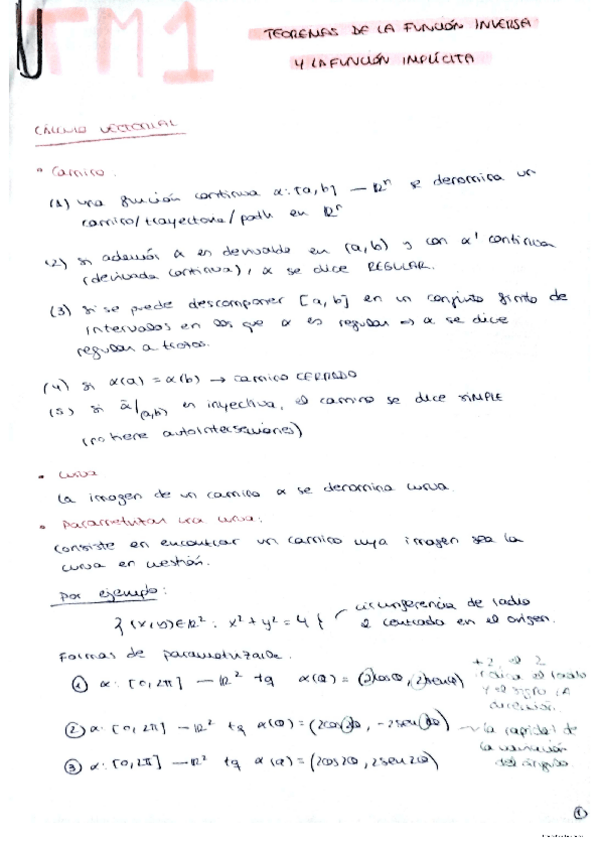 TM1
TEOREMAS DE LA FUNCIÓN INVERSA
Y LA FUNCIÓN IMPLÍCITA
CÁLCULO VECTORIAL
• Camino.
(1) una función continua α: [a, b] — ℝⁿ se denomina un
camino/trayectoria/path en ℝⁿ
(2) si además α es derivable en (a, b) y con α' continua
(derivada continua), α se dice REGULAR.
(3) si se puede descomponer [a, b] en un conjunto finito de
intervalos en los que α es regular ⇒ α se dice
regular a trozos.
(4) si α(a) = α(b) → camino CERRADO
(5) si α̃/(a,b) es inyectiva, el camino se dice SIMPLE
(no tiene autointersecciones)
• Curva
La imagen de un camino α se denomina curva.
• Parametrizar una curva:
Consiste en encontrar un camino cuya imagen sea la
curva en cuestión.
Por ejemplo:
{(x,y)∈ℝ² : x² + y² = 4} circunferencia de radio
2 centrado en el origen.
Formas de parametrizarla.
① α: [0, 2π] — ℝ² tq α(θ) = (2cosθ, 2senθ)
+2, el 2
indica el radio
y el signo la
dirección.
② α: [0, 2π] — ℝ² tq α(θ) = (2cos2θ, -2sen2θ)
la rapidez de
la variación
del ángulo.
③ α: [0, 2π] — ℝ² tq α(θ) = (2cos2θ, 2sen2θ)
①